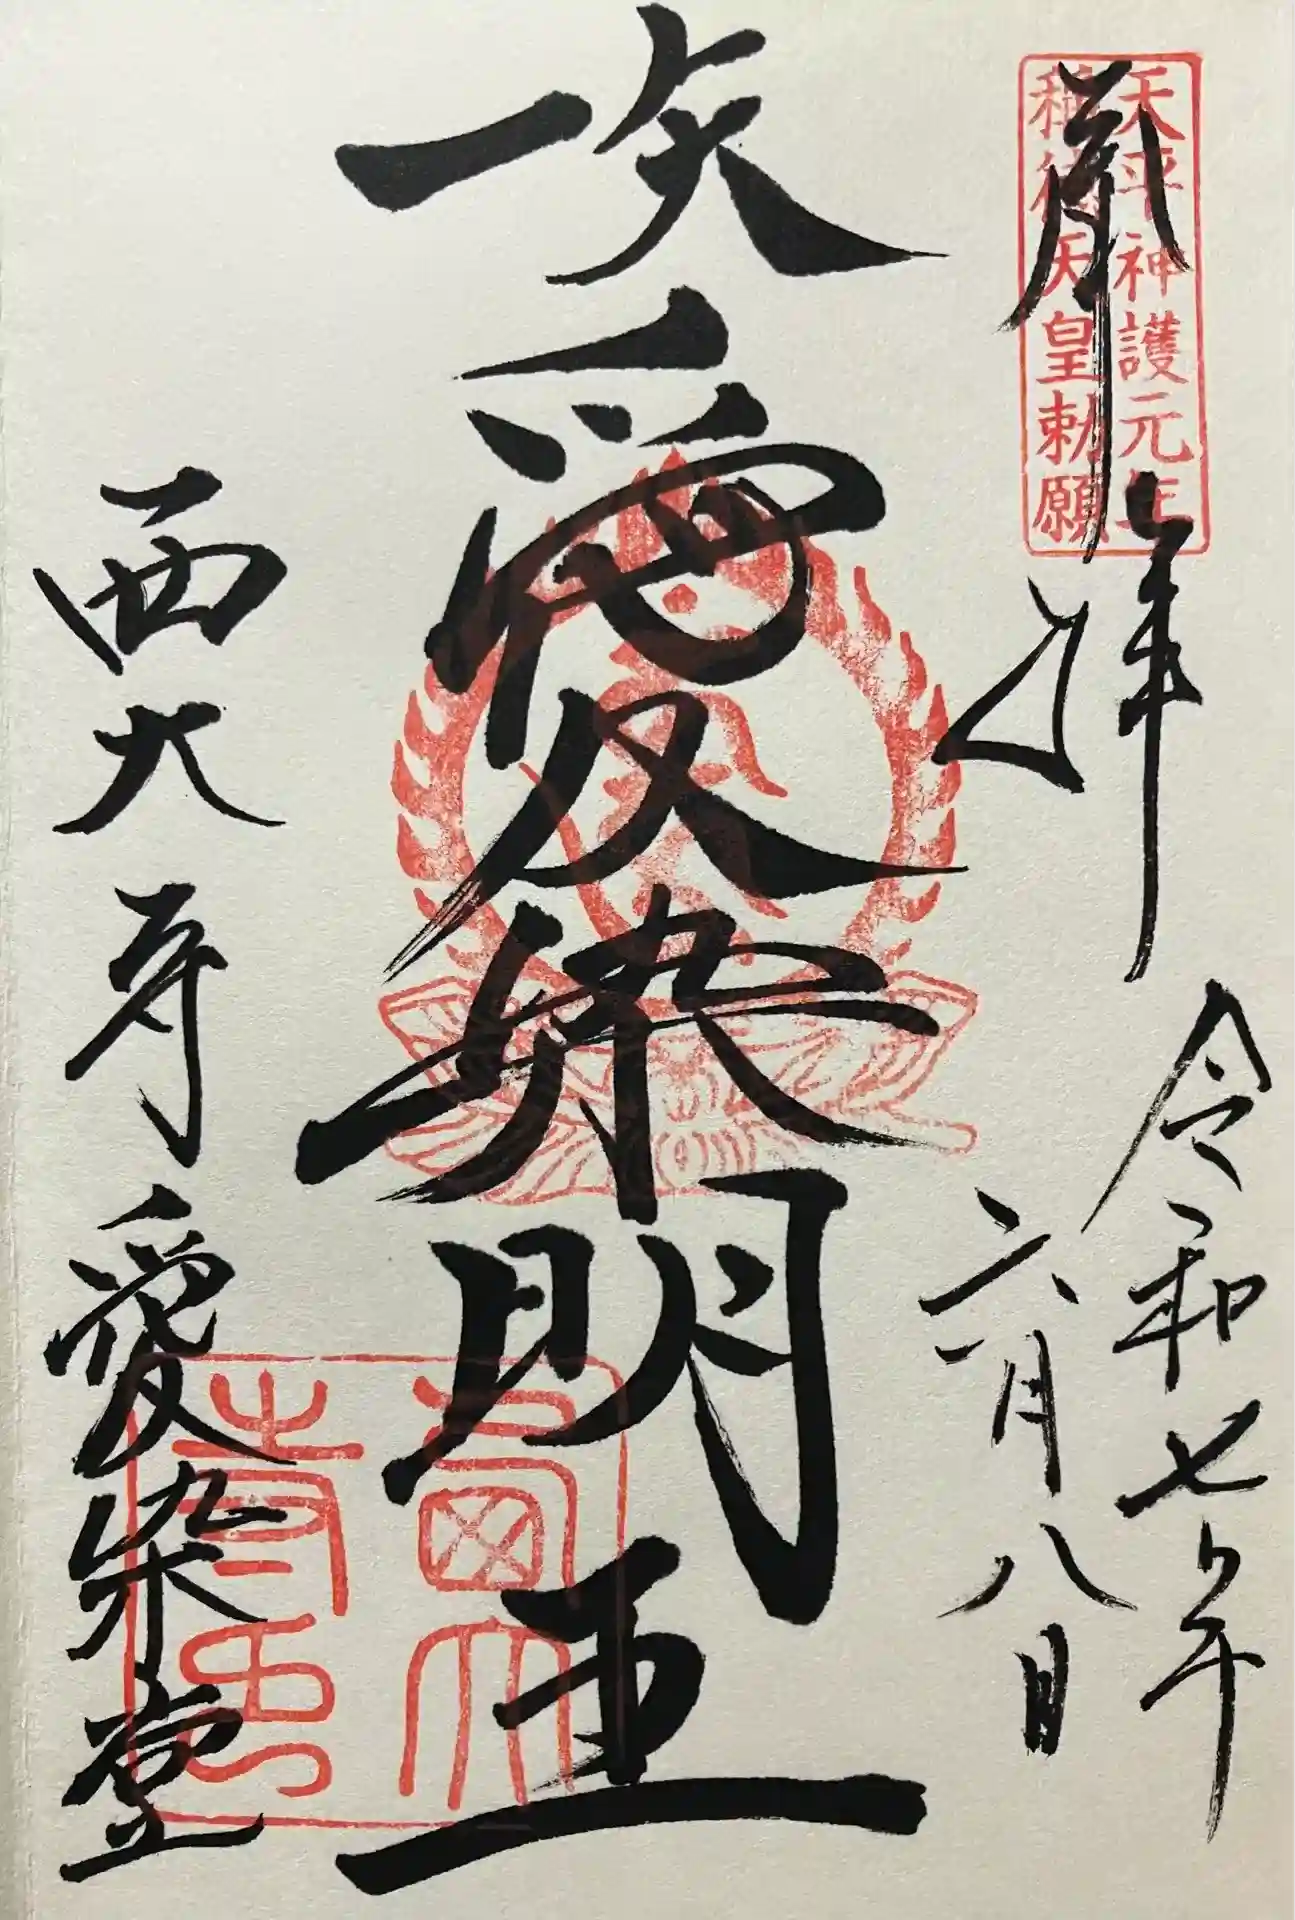 天平神護元年
稱徳天皇勅願
拝
令和七年
六月八日
愛染明王
西大寺愛染堂
西大寺印